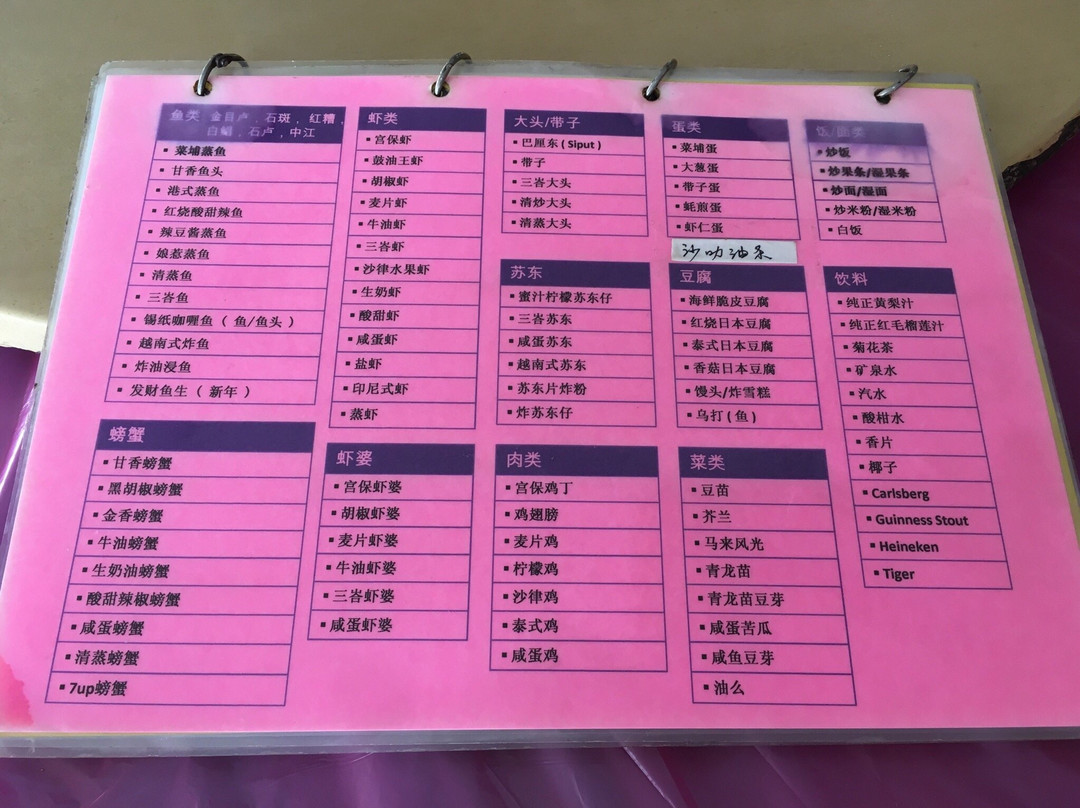 鱼类 金目卢，石斑，红糟，
白鲳，石卢，中江
菜埔蒸鱼
甘香鱼头
港式蒸鱼
红烧酸甜辣鱼
辣豆酱蒸鱼
娘惹蒸鱼
清蒸鱼
三峇鱼
锡纸咖喱鱼（鱼/鱼头）
越南式炸鱼
炸油浸鱼
发财鱼生（新年）
虾类
宫保虾
鼓油王虾
胡椒虾
麦片虾
牛油虾
三峇虾
沙律水果虾
生奶虾
酸甜虾
咸蛋虾
盐虾
印尼式虾
蒸虾
大头/带子
巴厘东 ( Siput )
带子
三峇大头
清炒大头
清蒸大头
蛋类
菜埔蛋
大葱蛋
带子蛋
蚝煎蛋
虾仁蛋
饭/面类
炒饭
炒果条/湿果条
炒面/湿面
炒米粉/湿米粉
白饭
苏东
蜜汁柠檬苏东仔
三峇苏东
咸蛋苏东
越南式苏东
苏东片炸粉
炸苏东仔
沙叻油条
豆腐
海鲜脆皮豆腐
红烧日本豆腐
泰式日本豆腐
香菇日本豆腐
馒头/炸雪糕
乌打 ( 鱼 )
饮料
纯正黄梨汁
纯正红毛榴莲汁
菊花茶
矿泉水
汽水
酸柑水
香片
椰子
Carlsberg
Guinness Stout
Heineken
Tiger
螃蟹
甘香螃蟹
黑胡椒螃蟹
金香螃蟹
牛油螃蟹
生奶油螃蟹
酸甜辣椒螃蟹
咸蛋螃蟹
清蒸螃蟹
7up螃蟹
虾婆
宫保虾婆
胡椒虾婆
麦片虾婆
牛油虾婆
三峇虾婆
咸蛋虾婆
肉类
宫保鸡丁
鸡翅膀
麦片鸡
柠檬鸡
沙律鸡
泰式鸡
咸蛋鸡
菜类
豆苗
芥兰
马来风光
青龙苗
青龙苗豆芽
咸蛋苦瓜
咸鱼豆芽
油么